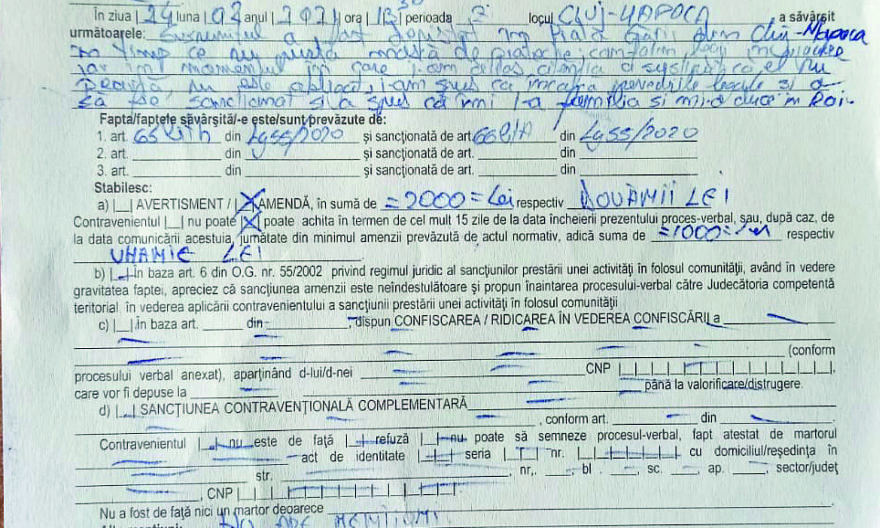 În ziua |24 luna |02 anul |2021| ora |12 30 perioada locul CLUJ-NAPOCA a săvârșit
următoarele: Suspuntul a fost depistat în Piața Gării din Cluj-Napoca
în timp ce nu purta mască de protecție,
iar în momentul în care i-am a el nu
este obligat, i-am spus că încalcă prevederile legale și o
să fie sancționat și a spus că familia și mi-o duce în Rai.
Fapta/faptele săvârșită/-e este/sunt prevăzute de:
1. art. 65 lit h din Lg 55/2020 și sancționată de art. 66 lit A din Lg 55/2020
2. art. din și sancționată de art. din
3. art. din și sancționată de art. din
Stabilesc:
a) |_| AVERTISMENT / |X| AMENDĂ, în sumă de =2000= Lei respectiv DOUAMII LEI
Contravenientul |_| nu poate |X| poate achita în termen de cel mult 15 zile de la data încheierii prezentului proces-verbal, sau, după caz, de
la data comunicării acestuia, jumătate din minimul amenzii prevăzută de actul normativ, adică suma de =1000= respectiv
UNAMIE LEI
b) |_| în baza art. 6 din O.G. nr. 55/2002 privind regimul juridic al sancțiunilor prestării unei activități în folosul comunității, având în vedere
gravitatea faptei, apreciez că sancțiunea amenzii este neîndestulătoare și propun înaintarea procesului-verbal către Judecătoria competentă
teritorial în vederea aplicării contravenientului a sancțiunii prestării unei activități în folosul comunității
c) |_| în baza art. din dispun CONFISCAREA / RIDICAREA ÎN VEDEREA CONFISCĂRII a
(conform
procesului verbal anexat), aparținând d-lui/d-nei CNP
care vor fi depuse la până la valorificare/distrugere.
d) |_| SANCȚIUNEA CONTRAVENȚIONALĂ COMPLEMENTARĂ
, conform art. din
Contravenientul |_| nu este de față |_| refuză |_| nu poate să semneze procesul-verbal, fapt atestat de martorul
act de identitate seria nr. cu domiciliul/reședința în
str. nr. bl. sc. ap. sector/județ
, CNP
Nu a fost de față nici un martor deoarece
NU ARE MENȚIUNI